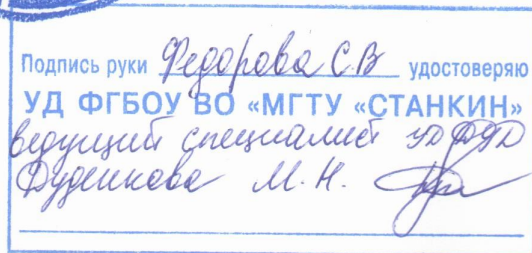 Подпись руки Федорова С.В удостоверяю
УД ФГБОУ ВО «МГТУ «СТАНКИН»
ведущий специалист УД
М. Н.